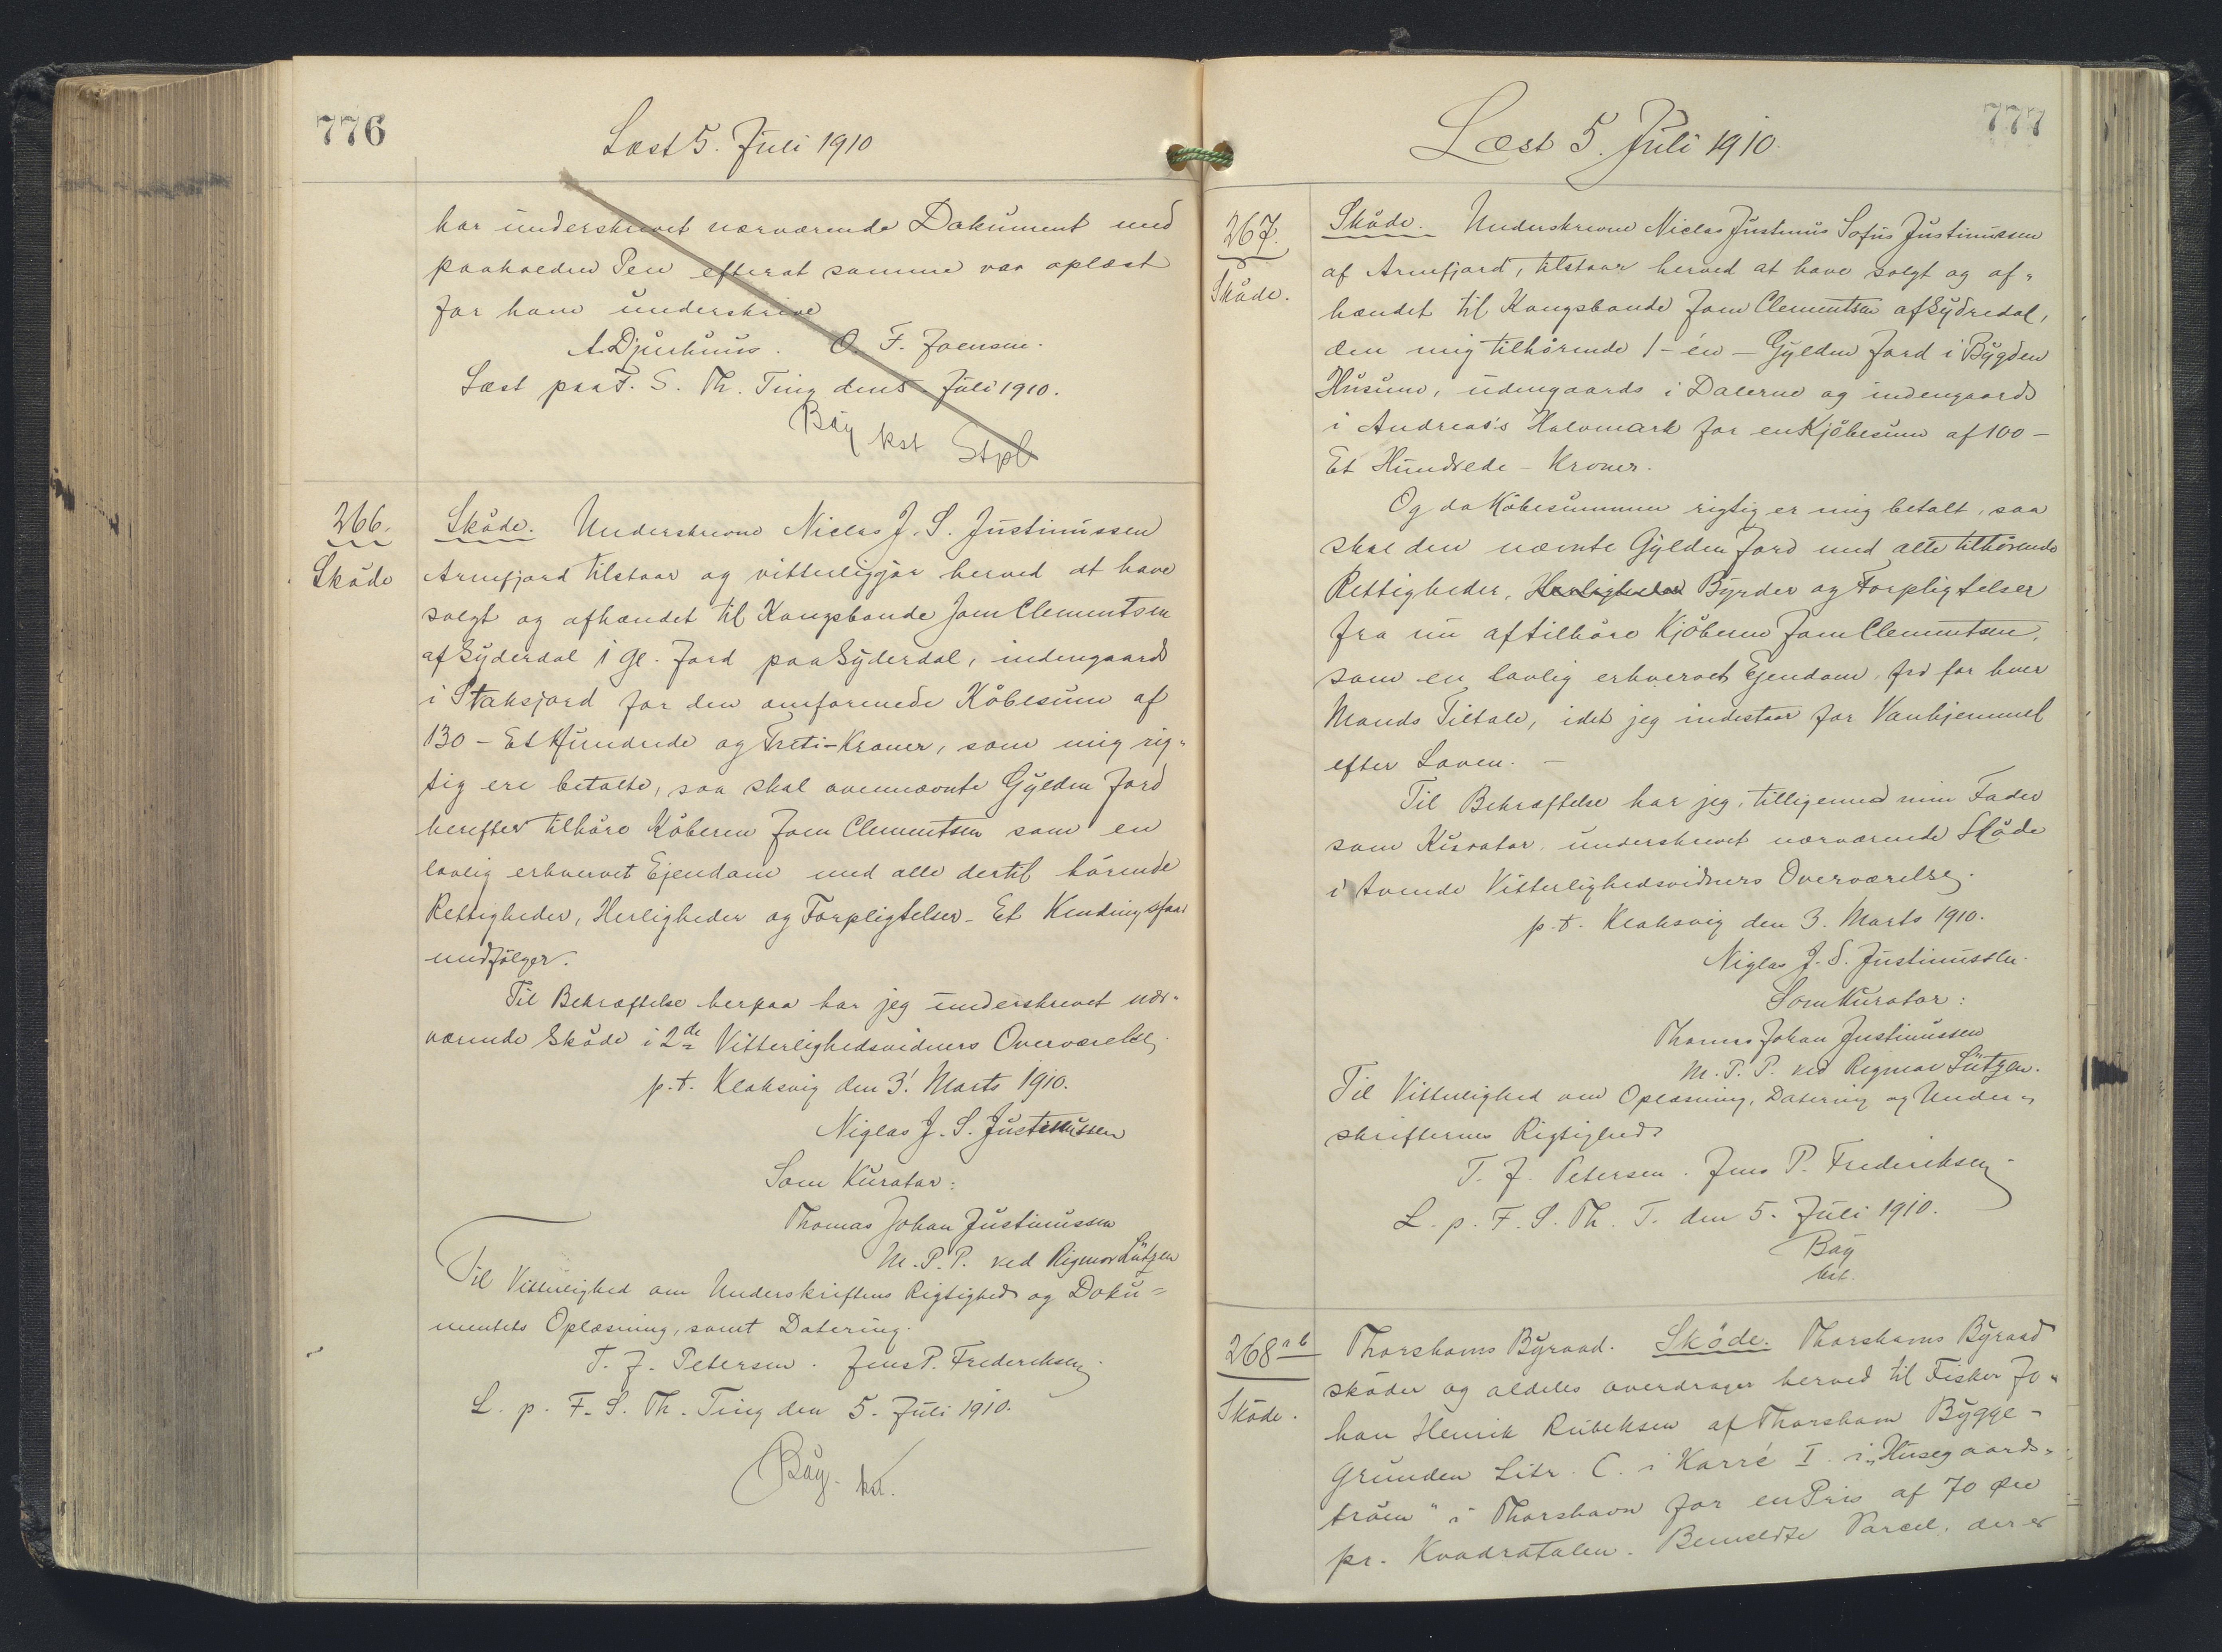 776
Læst 5. Juli 1910
har underskrevet nærværende Dokument med
paaholden Pen efterat samme var oplæst
for ham underskrive
A. Djurhuus. O. F. Joensen.
Læst paa F. S. Th. Ting den 5 Juli 1910.
Bay kst Stpl
266.
Skøde
Skøde. Underskrevne Niclas J. S. Justinussen
Arnefjord tilstaar og vitterliggjør herved at have
solgt og afhændet til Kongsbonde Joen Clementsen
af Syderdal 1 Gl. Jord paa Syderdal, indengaards
i Staksjord for den omforenede Købesum af
130 - Et Hundrede og Treti - Kroner, som mig rig-
tig ere betalte, saa skal ovennævnte Gylden Jord
herefter tilhøre Køberen Joen Clementsen som en
lovlig erhvervet Ejendom med alle dertil hørende
Rettigheder, Herligheder og Forpligtelser - Et Kendingsfaar
medfølger.
Til Bekræftelse herpaa har jeg underskrevet nær-
værende Skøde i 2de Vitterlighedsvidners Overværelse.
p.t. Klaksvig den 3! Marts 1910.
Niglas J. S. Justinussen
Som Kurator:
Thomas Johan Justinussen
M. P. P. ved Rigmor Lützen
Til Vitterlighed om Underskriftens Rigtighed og Doku=
mentets Oplæsning, samt Datering.
T. J. Petersen. Jens P. Frederiksen.
L. p. F. S. Th. Ting den 5. Juli 1910.
Bay. kst.
777
Læst 5. Juli 1910.
267.
Skøde.
Skøde. Underskrevne Niclas Justinus Sofus Justinussen
af Arnefjord, tilstaar herved at have solgt og af-
hændet til Kongsbonde Joen Clementsen af Sydredal,
den mig tilhørende 1 - én - Gylden Jord i Bygden
Husum, udengaards i Dalerne og indengaards
i Andreas's Halvmark for en Kjøbesum af 100 -
Et Hundrede - Kroner.
Og da Købesummen rigtig er mig betalt, saa
skal den nævnte Gylden Jord med alle tilhørende
Rettigheder, Herligheder Byrder og Forpligtelser
fra nu af tilhøre Kjøberen Joen Clementsen,
som en lovlig erhvervet Ejendom, fri for hver
Mands Tiltale, idet jeg indestaar for Vanhjemmel
efter Loven. -
Til Bekræftelse har jeg, tilligemed min Fader
som Kurator, underskrevet nærværende Skøde
i tvende Vitterlighedsvidners Overværelse.
p.t. Klaksvig den 3. Marts 1910.
Niglas J. S. Justinussen.
Som Kurator:
Thomas Johan Justinussen
M. P. P. ved Rigmor Lützen.
Til Vitterlighed om Oplæsning, Datering og Under-
skrifternes Rigtighed
T. J. Petersen. Jens P. Frederiksen.
L. p. F. S. Th. T. den 5. Juli 1910.
Bay
kst.
268 a b
Skøde.
Thorshavns Byraad. Skøde. Thorshavns Byraad
skøder og aldeles overdrager herved til Fisker Jo-
han Henrik Rubeksen af Thorshavn Bygge-
grunden Litr. C. i Karré I. i „Husegaards-
trøen" i Thorshavn for en Pris af 70 Øre
pr. Kvadratalen. Bemeldte Parcel, der er